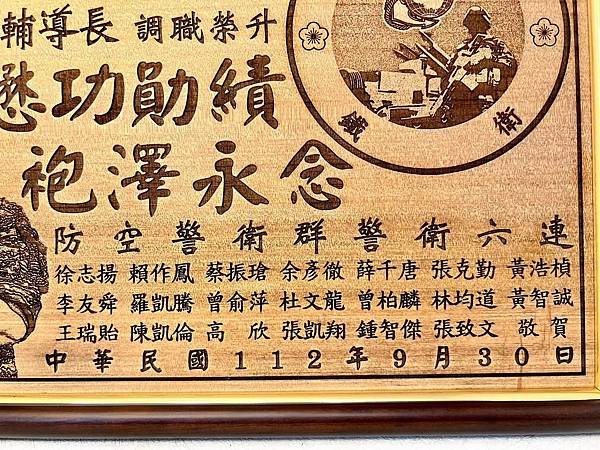 輔導長 調職榮升
懋功勛績
袍澤永念
鐵衛
防空警衛群警衛六連
徐志揚 賴作鳳 蔡振瑲 余彥徹 薛千唐 張克勤 黃浩楨
李友舜 羅凱騰 曾俞萍 杜文龍 曾柏麟 林均道 黃智誠
王瑞貽 陳凱倫 高欣 張凱翔 鍾智傑 張致文 敬賀
中華民國112年9月30日